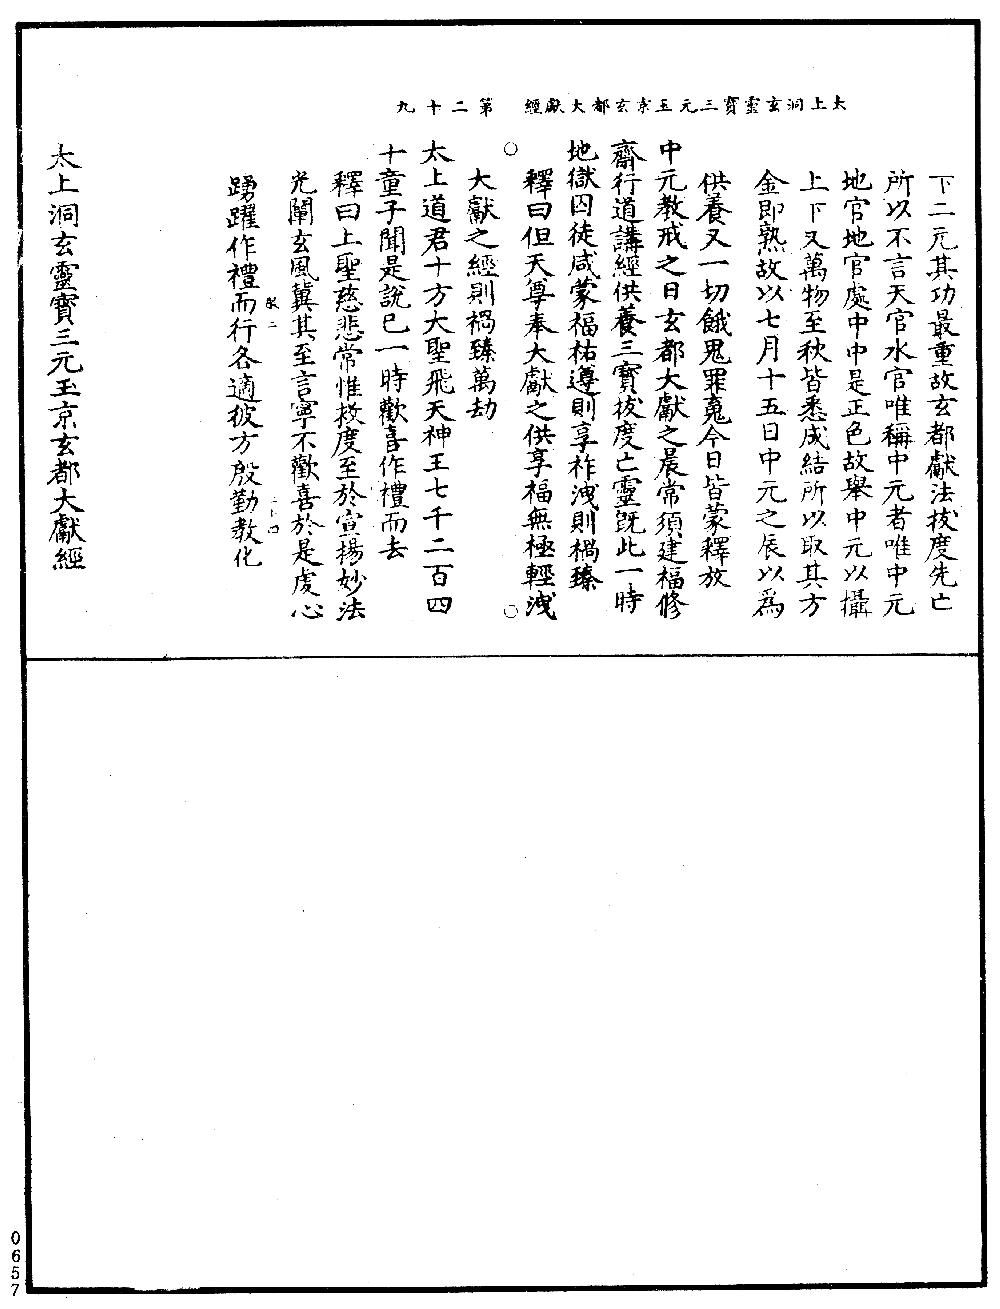 太上洞玄靈寶三元玉京玄都大獻經　第二十九
下二元其功最重故玄都獻法拔度先亡
所以不言天官水官唯稱中元者唯中元
地官地官處中中是正色故舉中元以攝
上下又萬物至秋皆悉成結所以取其方
金即熟故以七月十五日中元之辰以為
供養又一切餓鬼罪䰟今日皆蒙釋放
中元教戒之日玄都大獻之晨常須建福修
齋行道講經供養三寶拔度亡靈旣此一時
地獄囚徒咸蒙福祐遵則享祚洩則禍臻
釋曰但天尊奉大獻之供享福無極輕洩
大獻之經則禍臻萬劫
太上道君十方大聖飛天神王七千二百四
十童子聞是說已一時歡喜作禮而去
釋曰上聖慈悲常惟救度至於宣揚妙法
光闡玄風冀其至言寧不歡喜於是虔心
踴躍作禮而行各適彼方殷勤教化
太上洞玄靈寶三元玉京玄都大獻經
0657